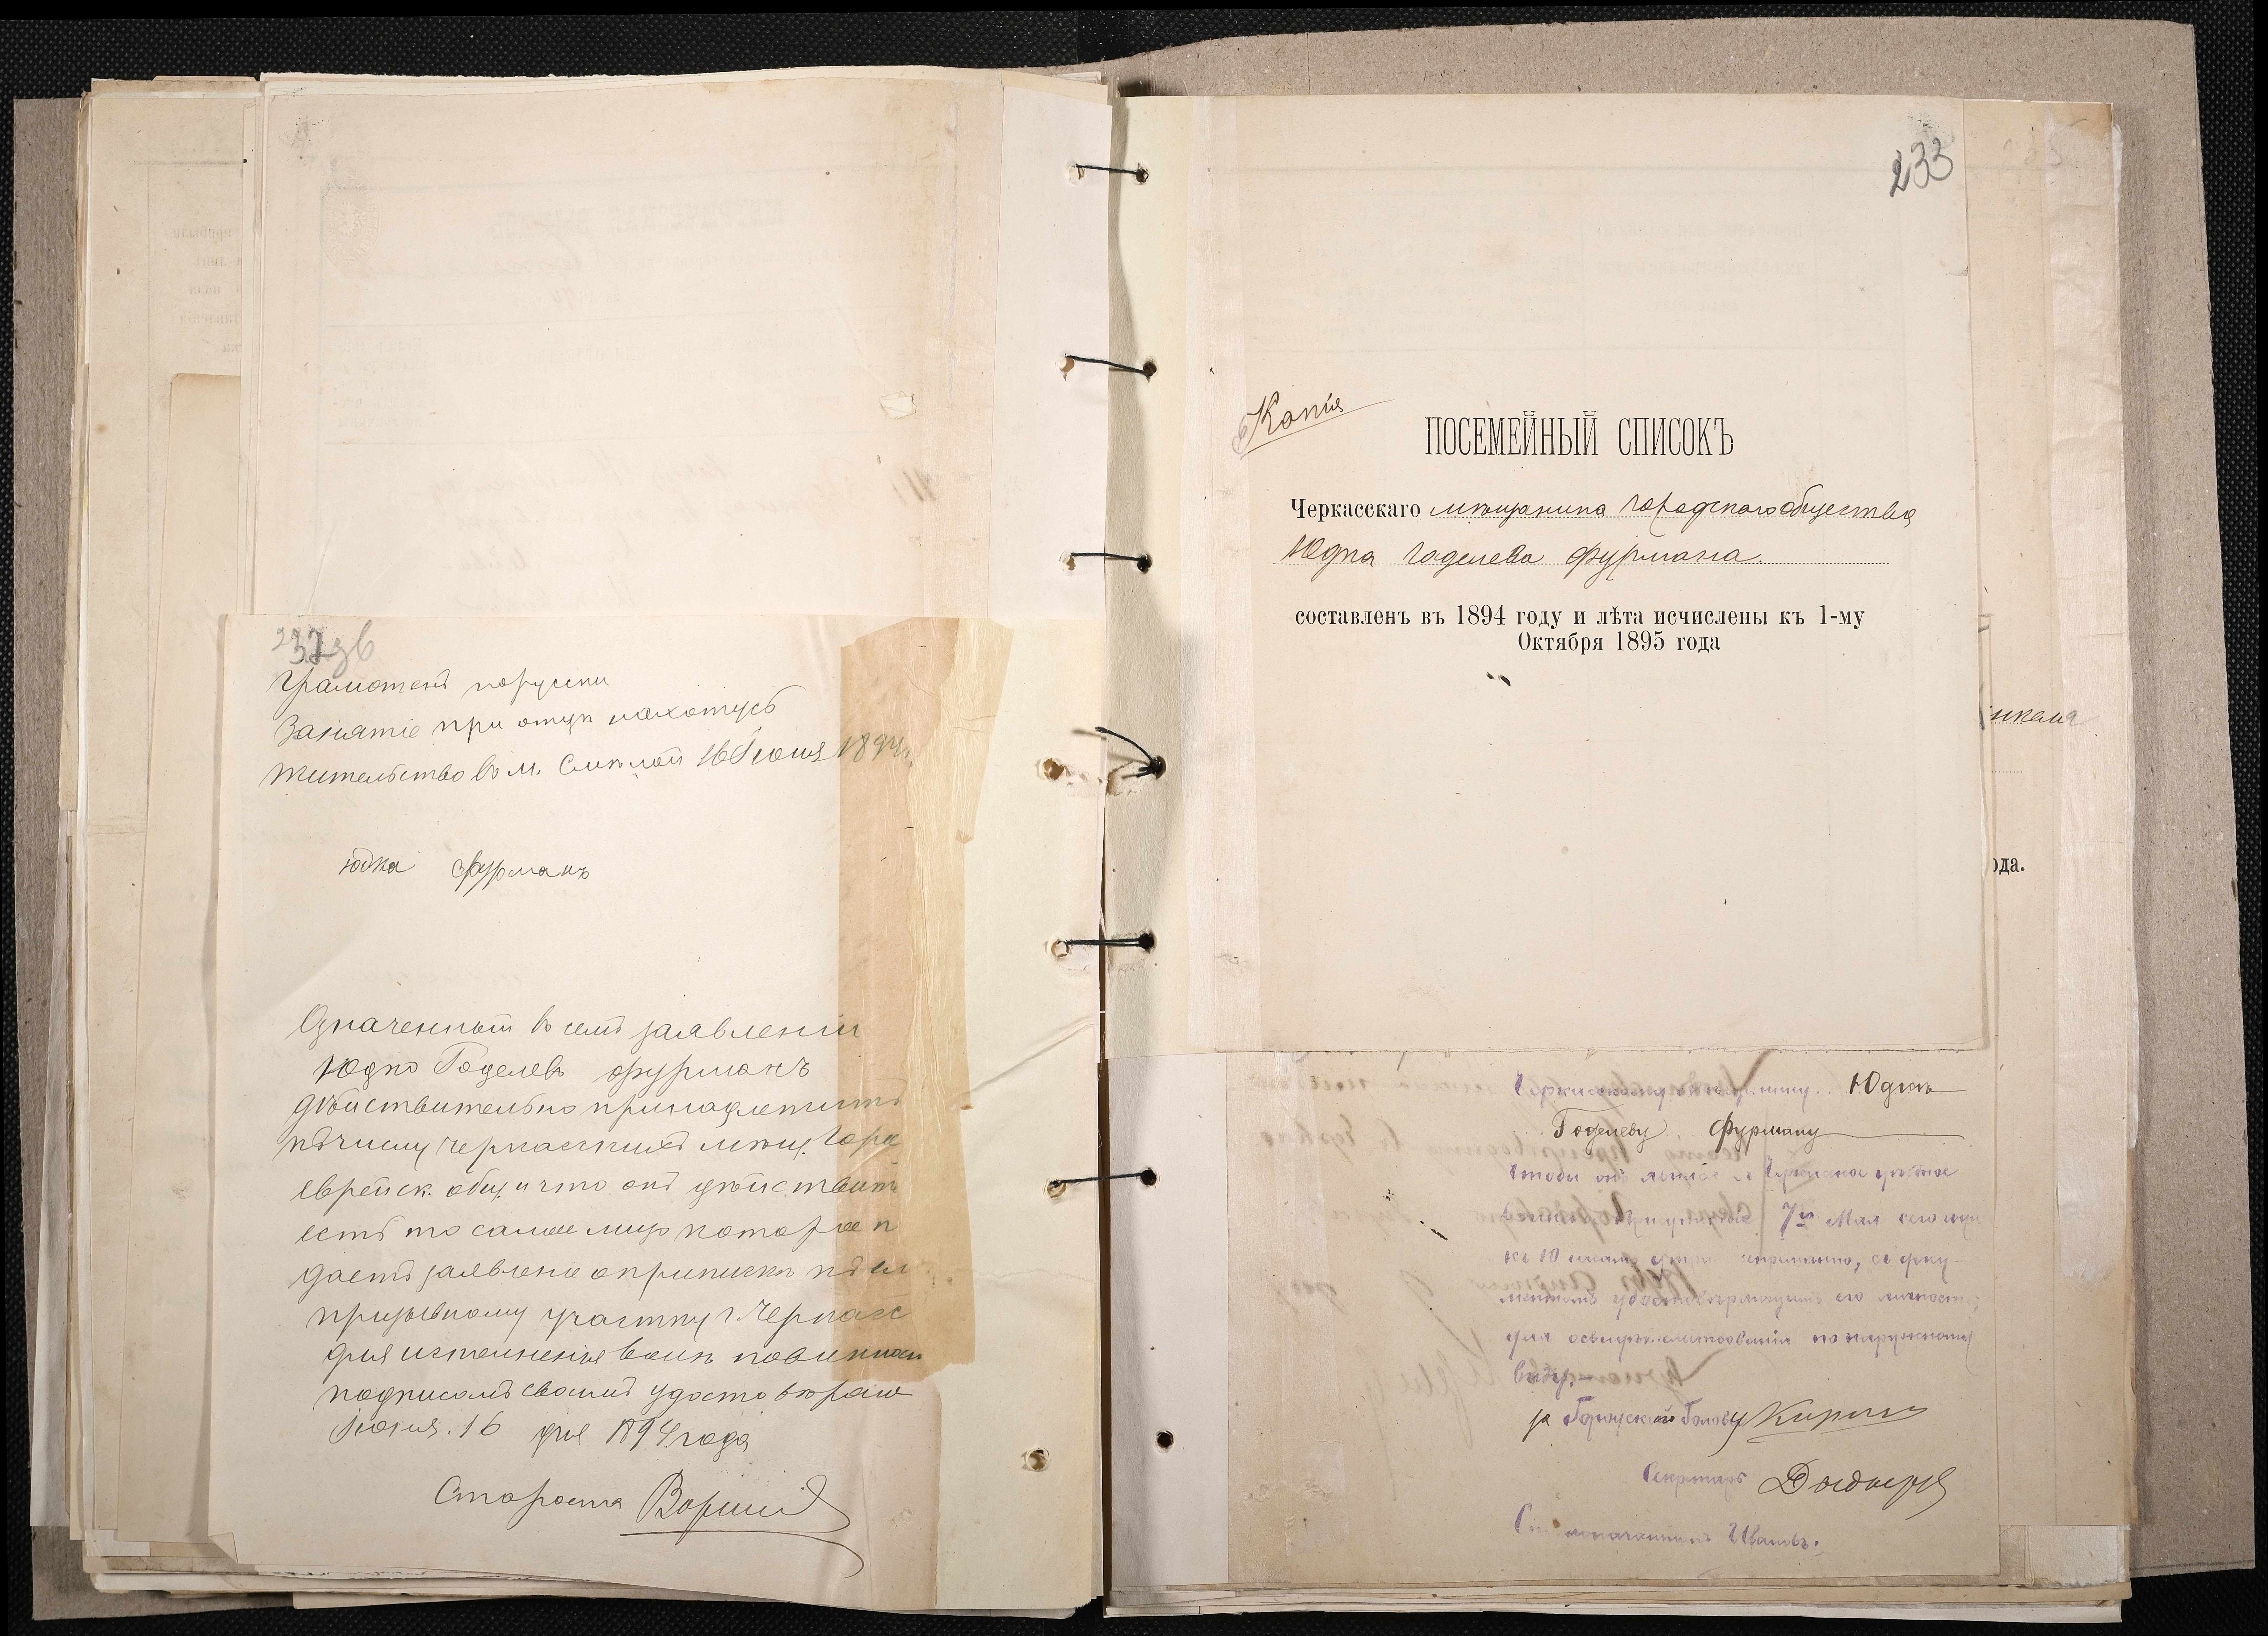 232 зв
Грамотенъ порусски
Занятіе при отцѣ нахотусъ
жительство в м. Смѣлой 16 Июня 1894 г.
юдка Фурманъ
Означенный в семъ заявленіи
Юдко Годелевъ Фурманъ
дѣйствительно принадлежитъ
къ числу черкасскихъ мѣщ. Гор
еврейск. общ. и что онъ дѣйствит
есть то самое лицо которое п
даетъ заявленіе о припискѣ къ
призывному участку г. Черкасс
для исполненія воинъ повиннос
подписомъ своимъ удостовѣраю
Июня. 16 дня 1894 года
Староста
233
Копія
ПОСЕМЕЙНЫЙ СПИСОКЪ
Черкасскаго мѣщанина городскаго общества
Юдка Годелева Фурмана.
составленъ въ 1894 году и лѣта исчислены къ 1-му
Октября 1895 года
нкеля
ода.
Черкасскому мѣщанину Юдкѣ
Годелеву Фурману
чтобы онъ явился в Черкасское уѣздное
Присутствіе 7го Мая сего года
къ 10 часамъ утра непремѣнно, съ доку-
ментомъ удостовѣряющимъ его личность,
для освидѣтельствованія по наружному
виду.
за Городского Голову
Секретарь
Ивановъ.